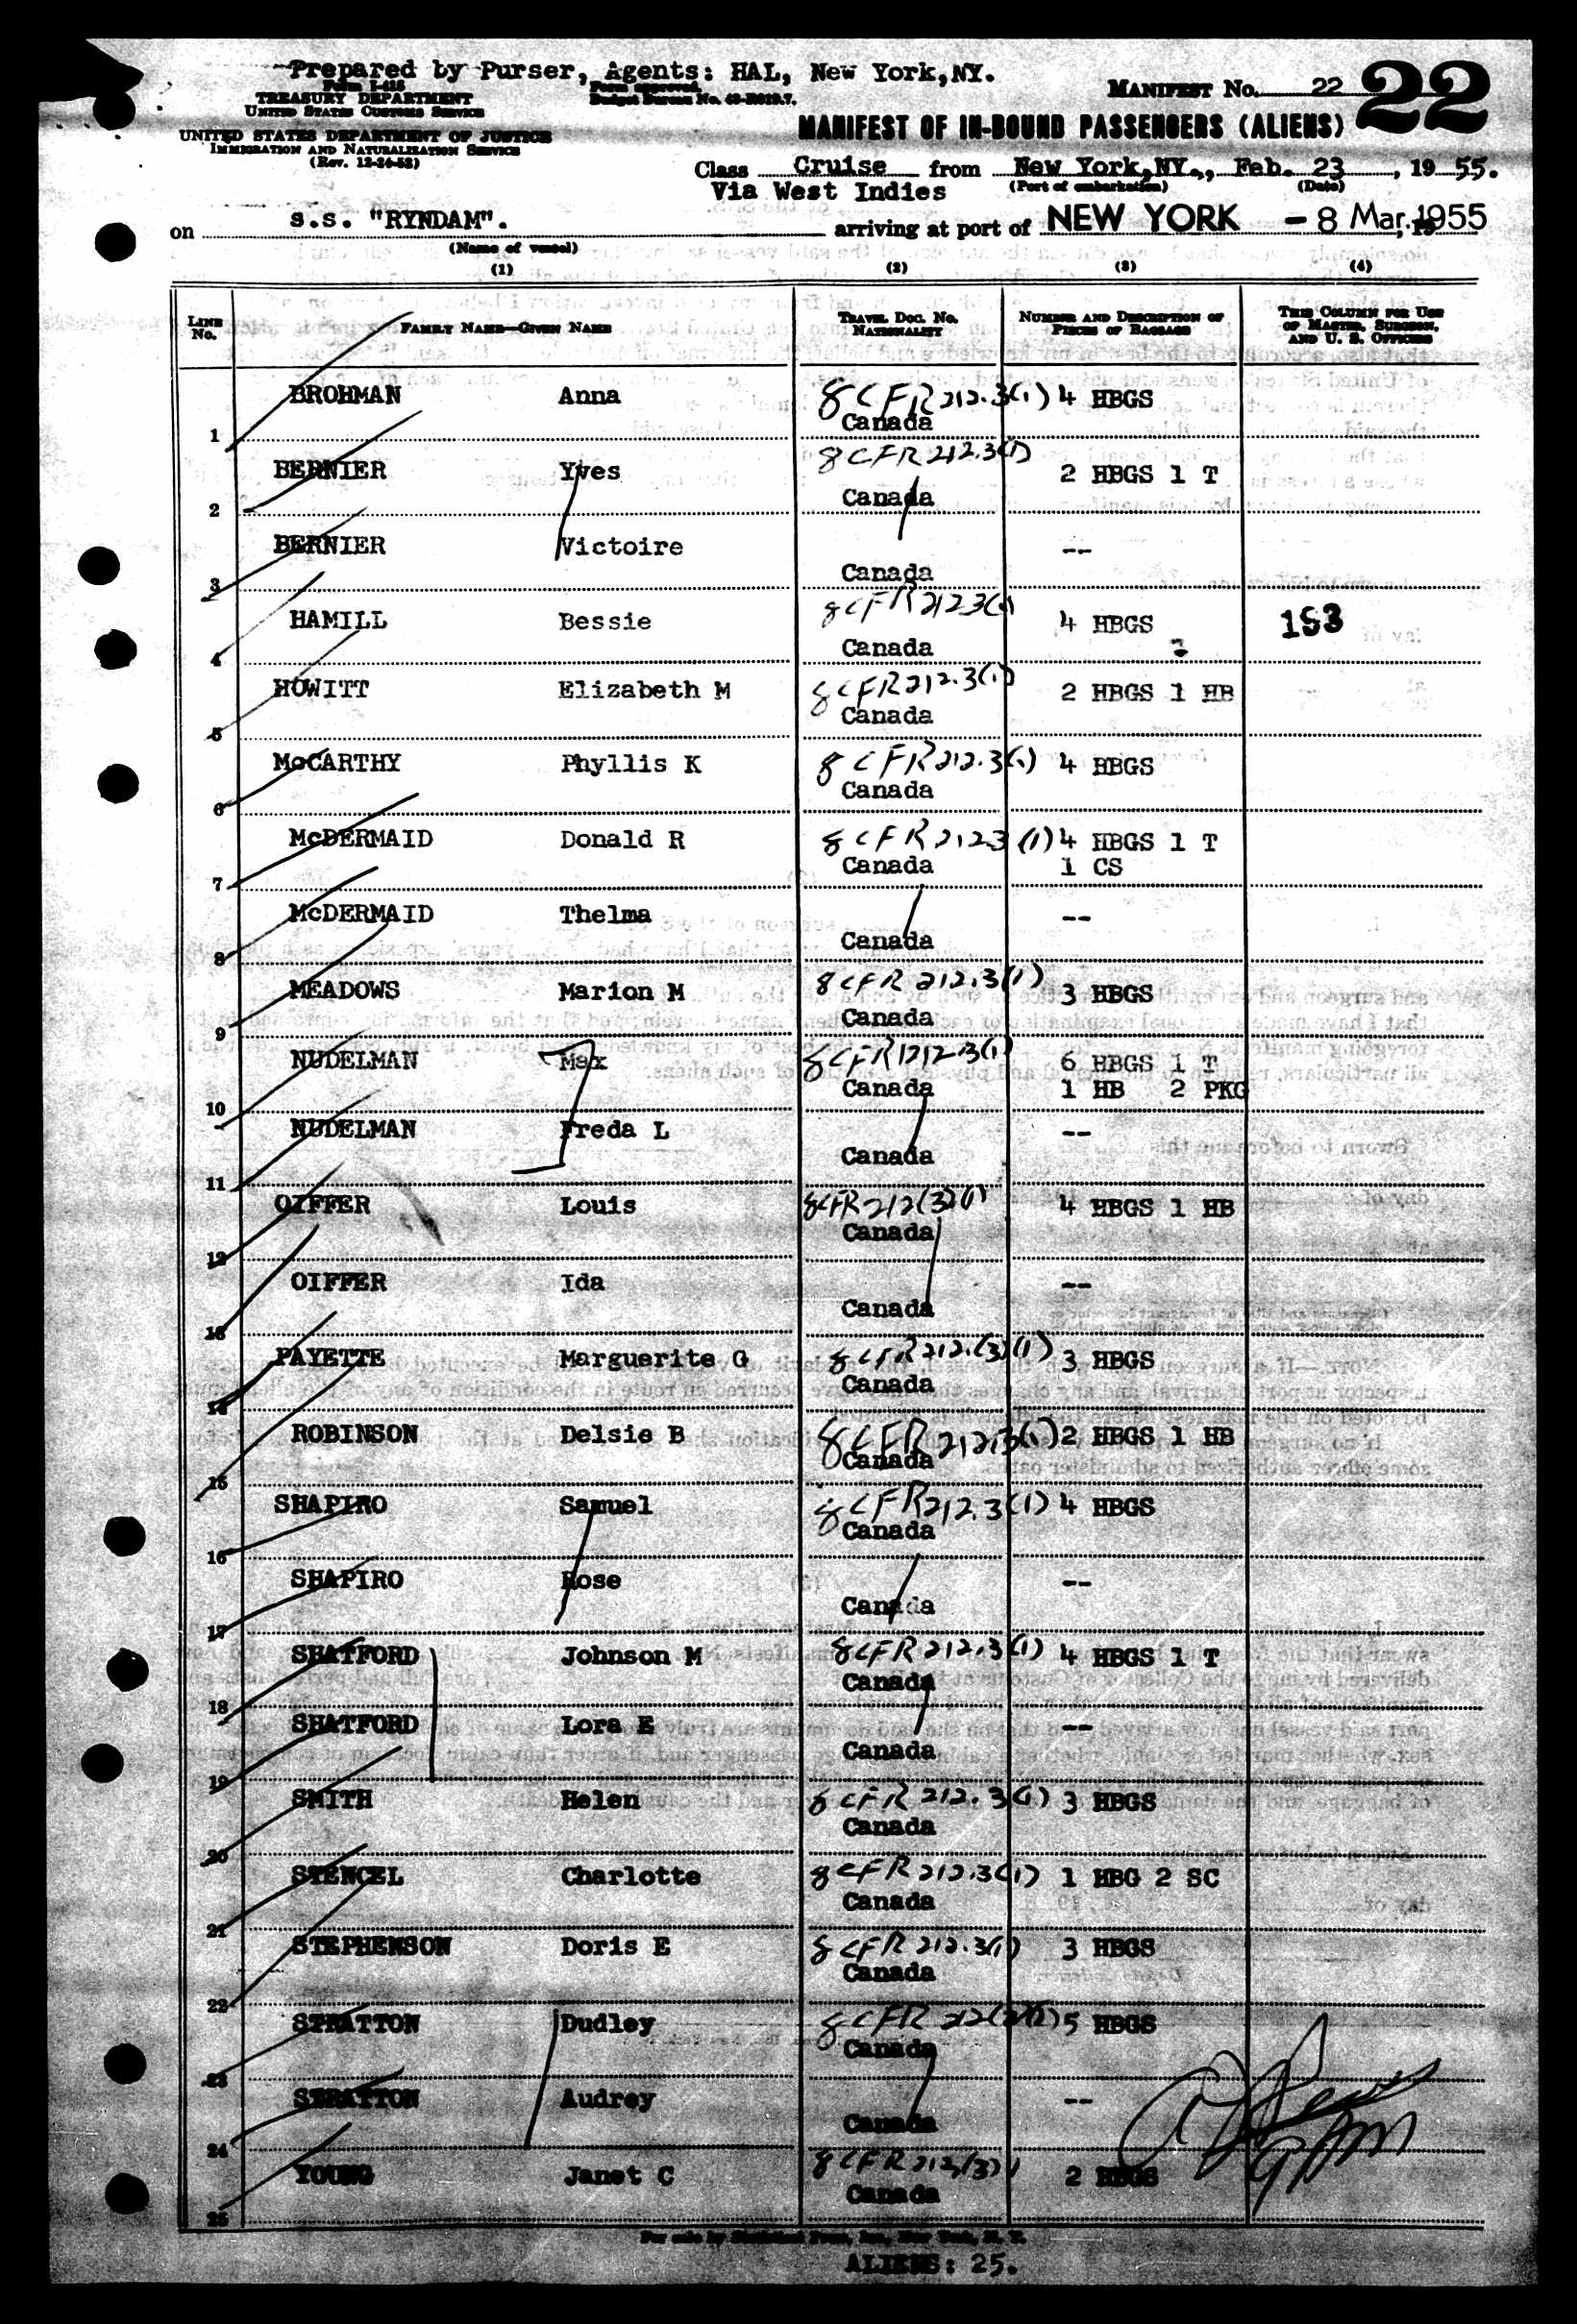 Prepared by Purser, Agents: HAL, New York, NY.
Form I-418
TREASURY DEPARTMENT
UNITED STATES CUSTOMS SERVICE
Form approved.
Budget Bureau No. 43-R019.7.
MANIFEST No. 22
22
UNITED STATES DEPARTMENT OF JUSTICE
IMMIGRATION AND NATURALIZATION SERVICE
(Rev. 12-24-52)
MANIFEST OF IN-BOUND PASSENGERS (ALIENS)
Class Cruise from New York,NY., Feb. 23, 1955.
Via West Indies (Port of embarkation) (Date)
on s.s. "RYNDAM". arriving at port of NEW YORK - 8 Mar. 1955
(Name of vessel)
(1) (2) (3) (4)
LINE No. FAMILY NAME—GIVEN NAME TRAVEL DOC. No. NATIONALITY NUMBER AND DESCRIPTION OF PIECES OF BAGGAGE THIS COLUMN FOR USE OF MASTER, SURGEON, AND U. S. OFFICERS
1 BROHMAN Anna 8 CFR 212.3(1) Canada 4 HBGS
2 BERNIER Yves 8 CFR 212.3(1) Canada 2 HBGS 1 T
3 BERNIER Victoire Canada --
4 HAMILL Bessie 8 CFR 212.3(1) Canada 4 HBGS 153
5 HOWITT Elizabeth M 8 CFR 212.3(1) Canada 2 HBGS 1 HB
6 McCARTHY Phyllis K 8 CFR 212.3(1) Canada 4 HBGS
7 McDERMAID Donald R 8 CFR 212.3(1) Canada 4 HBGS 1 T
1 CS
8 McDERMAID Thelma Canada --
9 MEADOWS Marion M 8 CFR 212.3(1) Canada 3 HBGS
10 NUDELMAN Max 8 CFR 212.3(1) Canada 6 HBGS 1 T
1 HB 2 PKG
11 NUDELMAN Freda L Canada --
12 OIFFER Louis 8 CFR 212(3)(1) Canada 4 HBGS 1 HB
13 OIFFER Ida Canada --
14 PAYETTE Marguerite G 8 CFR 212.(3)(1) Canada 3 HBGS
15 ROBINSON Delsie B 8 CFR 212.3(1) Canada 2 HBGS 1 HB
16 SHAPIRO Samuel 8 CFR 212.3(1) Canada 4 HBGS
17 SHAPIRO Rose Canada --
18 SHATFORD Johnson M 8 CFR 212.3(1) Canada 4 HBGS 1 T
19 SHATFORD Lora E Canada --
20 SMITH Helen 8 CFR 212.3(1) Canada 3 HBGS
21 STENCEL Charlotte 8 CFR 212.3(1) Canada 1 HBG 2 SC
22 STEPHENSON Doris E 8 CFR 212.3(1) Canada 3 HBGS
23 STRATTON Dudley 8 CFR 212(3)(1) Canada 5 HBGS
24 STRATTON Audrey Canada --
25 YOUNG Janet C 8 CFR 212.(3)1 Canada 2 HBGS
ALIENS: 25.